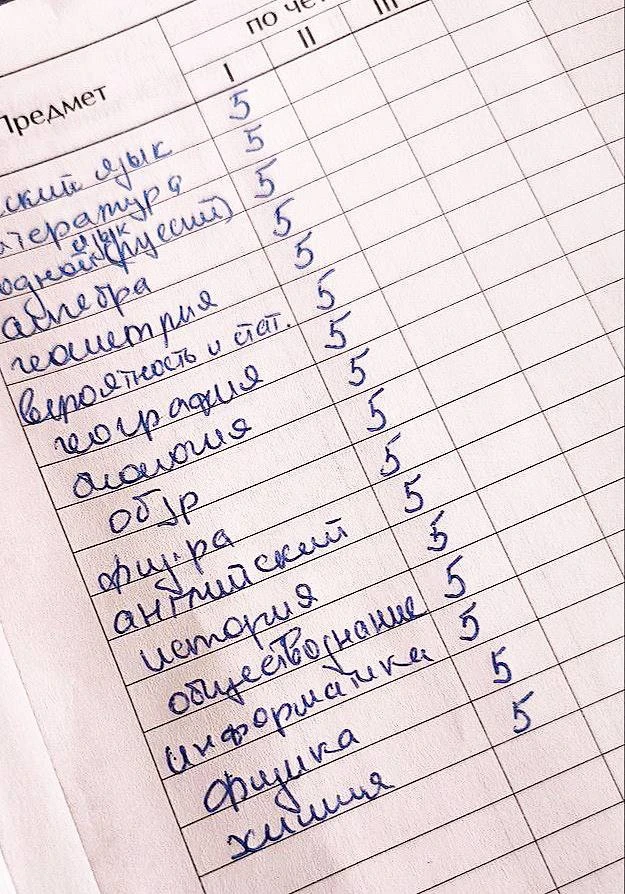 по чет
Предмет I II III
ский язык 5
итература 5
одной язык (русский) 5
алгебра 5
геометрия 5
вероятность и стат. 5
география 5
биология 5
обзр 5
физ-ра 5
английский 5
история 5
обществознание 5
информатика 5
физика 5
химия 5